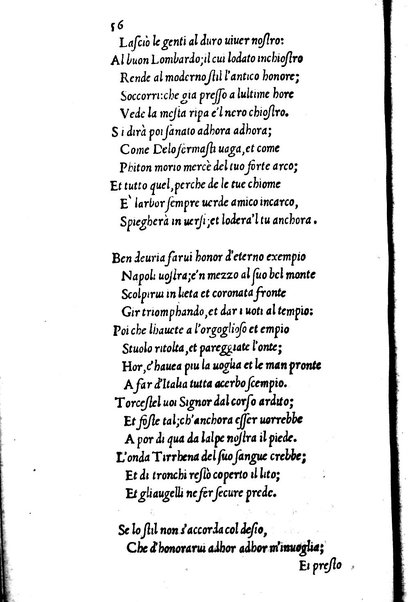 56
Lasciò le genti al duro viuer nostro:
Al buon Lombardo; il cui lodato inchiostro
Rende al moderno stil l'antico honore;
Soccorri: che gia presso a lultime hore
Vede la mesta ripa e'l nero chiostro.
Si dirà poi sanato adhora adhora;
Come Delo fermasti uaga, et come
Phiton morio mercè del tuo forte arco;
Et tutto quel, perche de le tue chiome
E' larbor sempre uerde amico incarco,
Spiegherà in uersi; et lodera'l tu anchora.
Ben deuria farui honor d'eterno exempio
Napoli uostra; e'n mezzo al suo bel monte
Scolpirui in lieta et coronata fronte
Gir triomphando, et dar i uoti al tempio:
Poi che lhauete a l'orgoglioso et empio
Stuolo ritolta, et pareggiate l'onte;
Hor, c'hauea piu la uoglia et le man pronte
A far d'Italia tutta acerbo scempio.
Torcestel uoi Signor dal corso ardito;
Et foste tal; ch'anchora esser uorrebbe
A por di qua da lalpe nostra il piede.
L'onda Tirrhena del suo sangue crebbe;
Et di tronchi restò coperto il lito;
Et gli augelli ne fer secure prede.
Se lo stil non s'accorda col desio,
Che d'honorarui adhor adhor m'inuoglia;
Et presto